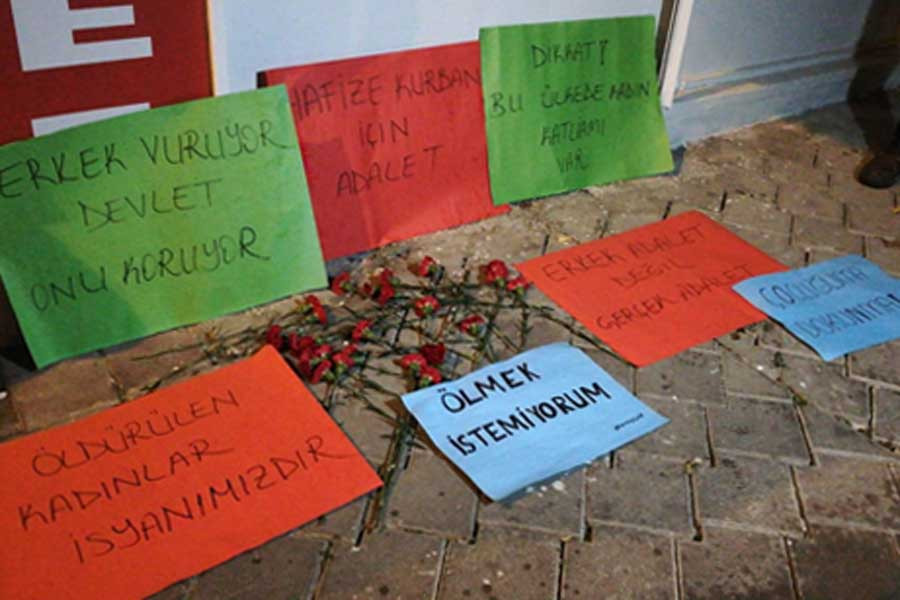 ERKEK VURUYOR
DEVLET
ONU KORUYOR
HAFİZE KURBAN
İÇİN
ADALET
DİKKAT!
BU ÜLKEDE KADIN
KATLİAMI
VAR
ERKEK ADALET
DEĞİL
GERÇEK ADALET
DOKUNMA
ÖLMEK
İSTEMİYORUM
ÖLDÜRÜLEN
KADINLAR
İSYANIMIZDIR